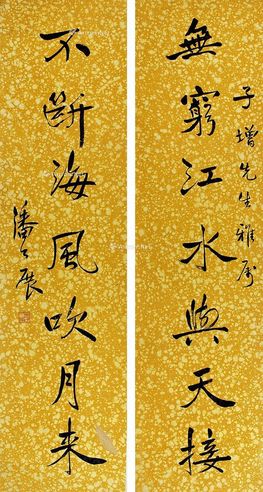 子增先生雅属
無窮江水與天接
不斷海風吹月來
潘公展